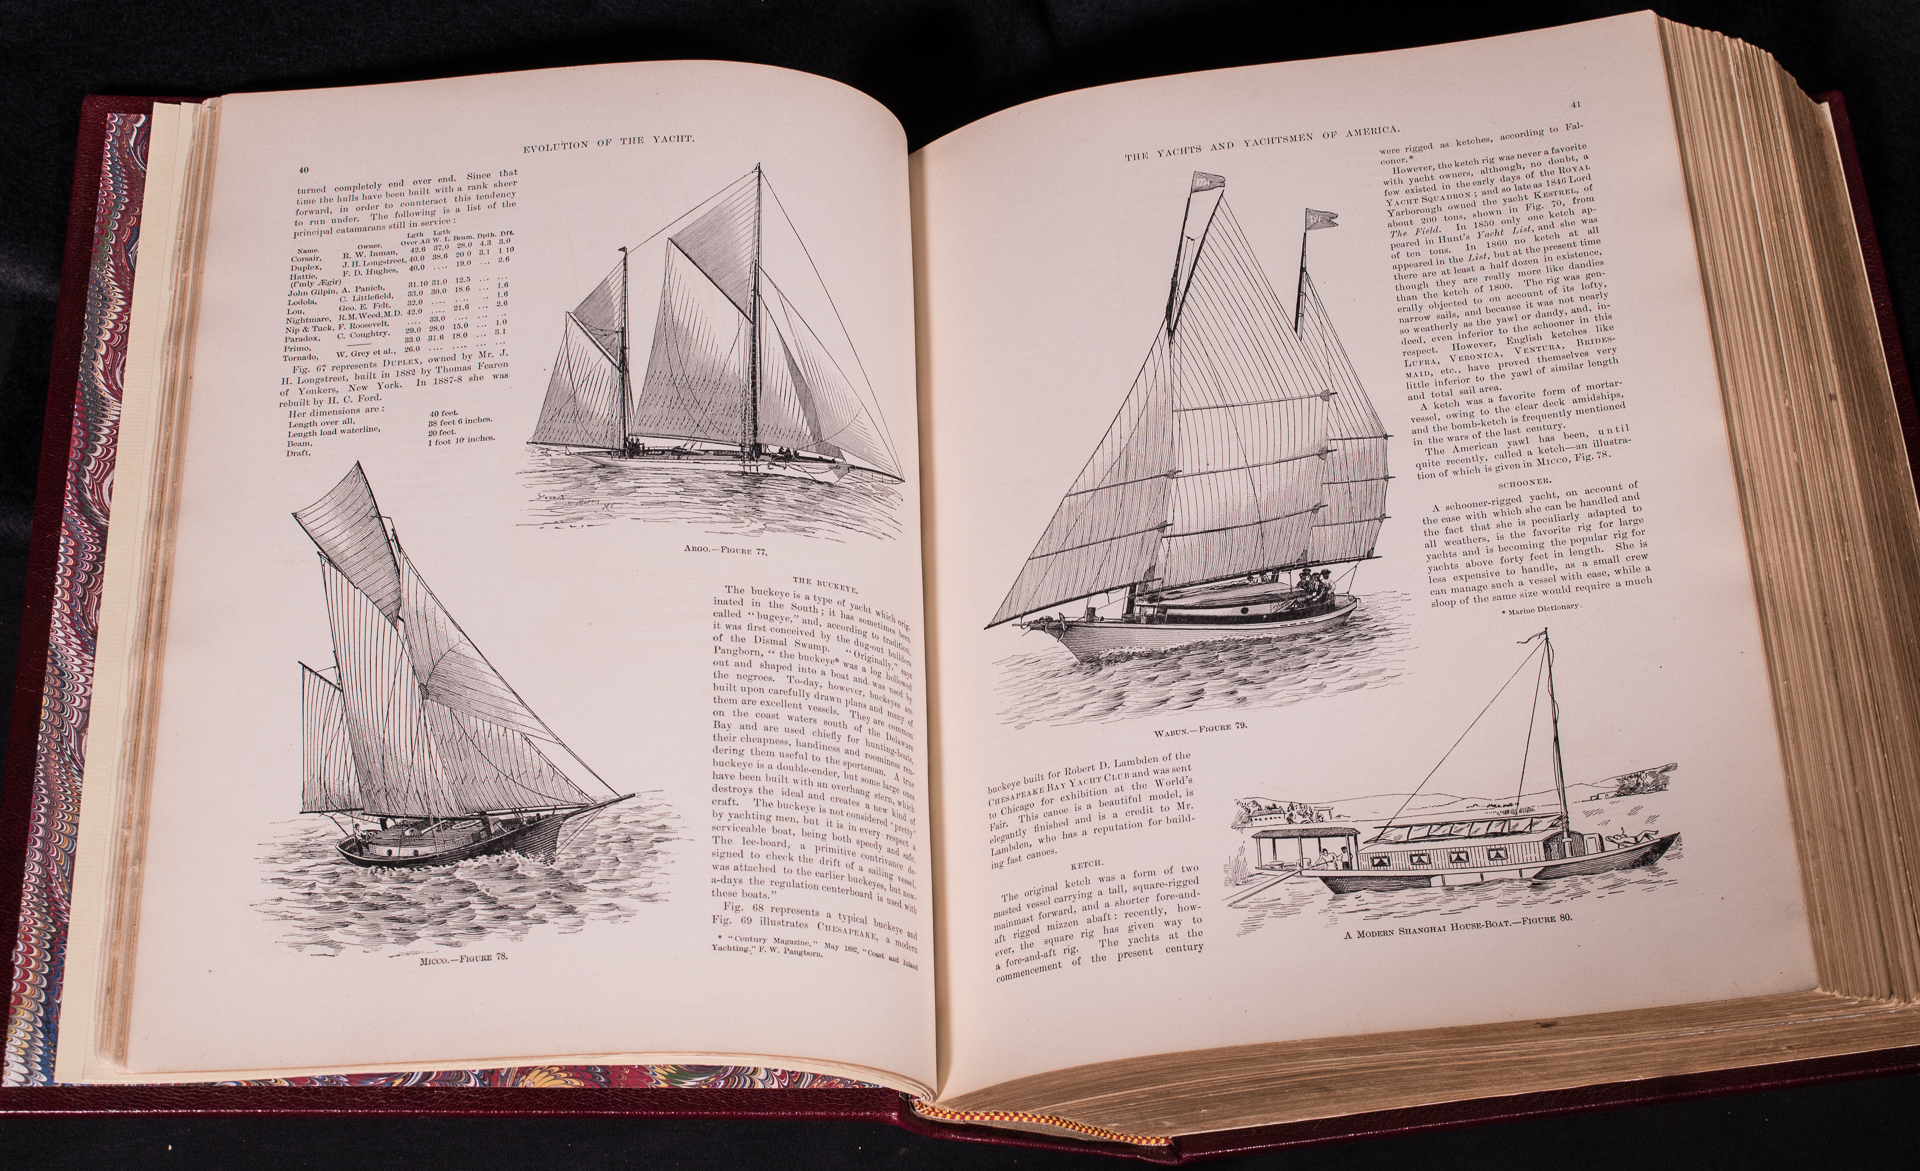 40
EVOLUTION OF THE YACHT.
turned completely end over end. Since that
time the hulls have been built with a rank sheer
forward, in order to counteract this tendency
to run under. The following is a list of the
principal catamarans still in service:
Lgth Lgth
Name. Owner. Over All W. L. Beam. Dpth. Dft.
Corsair, R. W. Inman, 42.6 37.0 28.0 4.3 3.0
Duplex, J. H. Longstreet, 40.0 38.6 20 0 3.1 1 10
Hattie, F. D. Hughes, 40.0 .... 19.0 ... 2.6
(f'mly Ægir)
John Gilpin, A. Panich, 31.10 31.0 12.5 ... ...
Lodola, C. Littlefield, 33.0 30.0 18.6 ... 1.6
Lou, Geo. E. Felt, 32.0 .... .... ... 1.6
Nightmare, R.M.Weed,M.D. 42.0 .... 21.6 ... 2.6
Nip & Tuck, F. Roosevelt, .... 33.0 .... ... ...
Paradox, C. Coughtry, 29.0 28.0 15.0 ... 1.0
Primo, 33.0 31.6 18.0 ... 3.1
Tornado, W. Grey et al., 26.0 .... .... ... ...
Fig. 67 represents DUPLEX, owned by Mr. J.
H. Longstreet, built in 1882 by Thomas Fearon
of Yonkers, New York. In 1887-8 she was
rebuilt by H. C. Ford.
Her dimensions are:
Length over all, 40 feet.
Length load waterline, 38 feet 6 inches.
Beam, 20 feet.
Draft, 1 foot 10 inches.
ARGO.—FIGURE 77.
MICCO.—FIGURE 78.
THE BUCKEYE.
The buckeye is a type of yacht which orig-
inated in the South; it has sometimes been
called "bugeye," and, according to tradition,
it was first conceived by the dug-out builders
of the Dismal Swamp. "Originally," says
Pangborn, "the buckeye* was a log hollowed
out and shaped into a boat and was used by
the negroes. To-day, however, buckeyes are
built upon carefully drawn plans and many of
them are excellent vessels. They are common
on the coast waters south of the Delaware
Bay and are used chiefly for hunting-boats,
their cheapness, handiness and roominess ren-
dering them useful to the sportsman. A true
buckeye is a double-ender, but some large ones
have been built with an overhang stern, which
destroys the ideal and creates a new kind of
craft. The buckeye is not considered 'pretty'
by yachting men, but it is in every respect a
serviceable boat, being both speedy and safe.
The lee-board, a primitive contrivance de-
signed to check the drift of a sailing vessel,
was attached to the earlier buckeyes, but now-
a-days the regulation centerboard is used with
these boats."
Fig. 68 represents a typical buckeye and
Fig. 69 illustrates CHESAPEAKE, a modern
* "Century Magazine," May 1892, "Coast and Inland
Yachting," F. W. Pangborn.
THE YACHTS AND YACHTSMEN OF AMERICA.
41
WABUN.—FIGURE 79.
buckeye built for Robert D. Lambden of the
CHESAPEAKE BAY YACHT CLUB and was sent
to Chicago for exhibition at the World's
Fair. This canoe is a beautiful model, is
elegantly finished and is a credit to Mr.
Lambden, who has a reputation for build-
ing fast canoes.
KETCH.
The original ketch was a form of two
masted vessel carrying a tall, square-rigged
mainmast forward, and a shorter fore-and-
aft rigged mizzen abaft: recently, how-
ever, the square rig has given way to
a fore-and-aft rig. The yachts at the
commencement of the present century
were rigged as ketches, according to Fal-
coner.*
However, the ketch rig was never a favorite
with yacht owners, although, no doubt, a
few existed in the early days of the ROYAL
YACHT SQUADRON; and so late as 1846 Lord
Yarborough owned the yacht KESTREL, of
about 200 tons, shown in Fig. 70, from
The Field. In 1850 only one ketch ap-
peared in Hunt's Yacht List, and she was
of ten tons. In 1860 no ketch at all
appeared in the List, but at the present time
there are at least a half dozen in existence,
though they are really more like dandies
than the ketch of 1800. The rig was gen-
erally objected to on account of its lofty,
narrow sails, and because it was not nearly
so weatherly as the yawl or dandy, and, in-
deed, even inferior to the schooner in this
respect. However, English ketches like
LUFRA, VERONICA, VENTURA, BRIDES-
MAID, etc., have proved themselves very
little inferior to the yawl of similar length
and total sail area.
A ketch was a favorite form of mortar-
vessel, owing to the clear deck amidships,
and the bomb-ketch is frequently mentioned
in the wars of the last century.
The American yawl has been, until
quite recently, called a ketch—an illustra-
tion of which is given in MICCO, Fig. 78.
SCHOONER.
A schooner-rigged yacht, on account of
the ease with which she can be handled and
the fact that she is peculiarly adapted to
all weathers, is the favorite rig for large
yachts and is becoming the popular rig for
yachts above forty feet in length. She is
less expensive to handle, as a small crew
can manage such a vessel with ease, while a
sloop of the same size would require a much
* Marine Dictionary.
A MODERN SHANGHAI HOUSE-BOAT.—FIGURE 80.